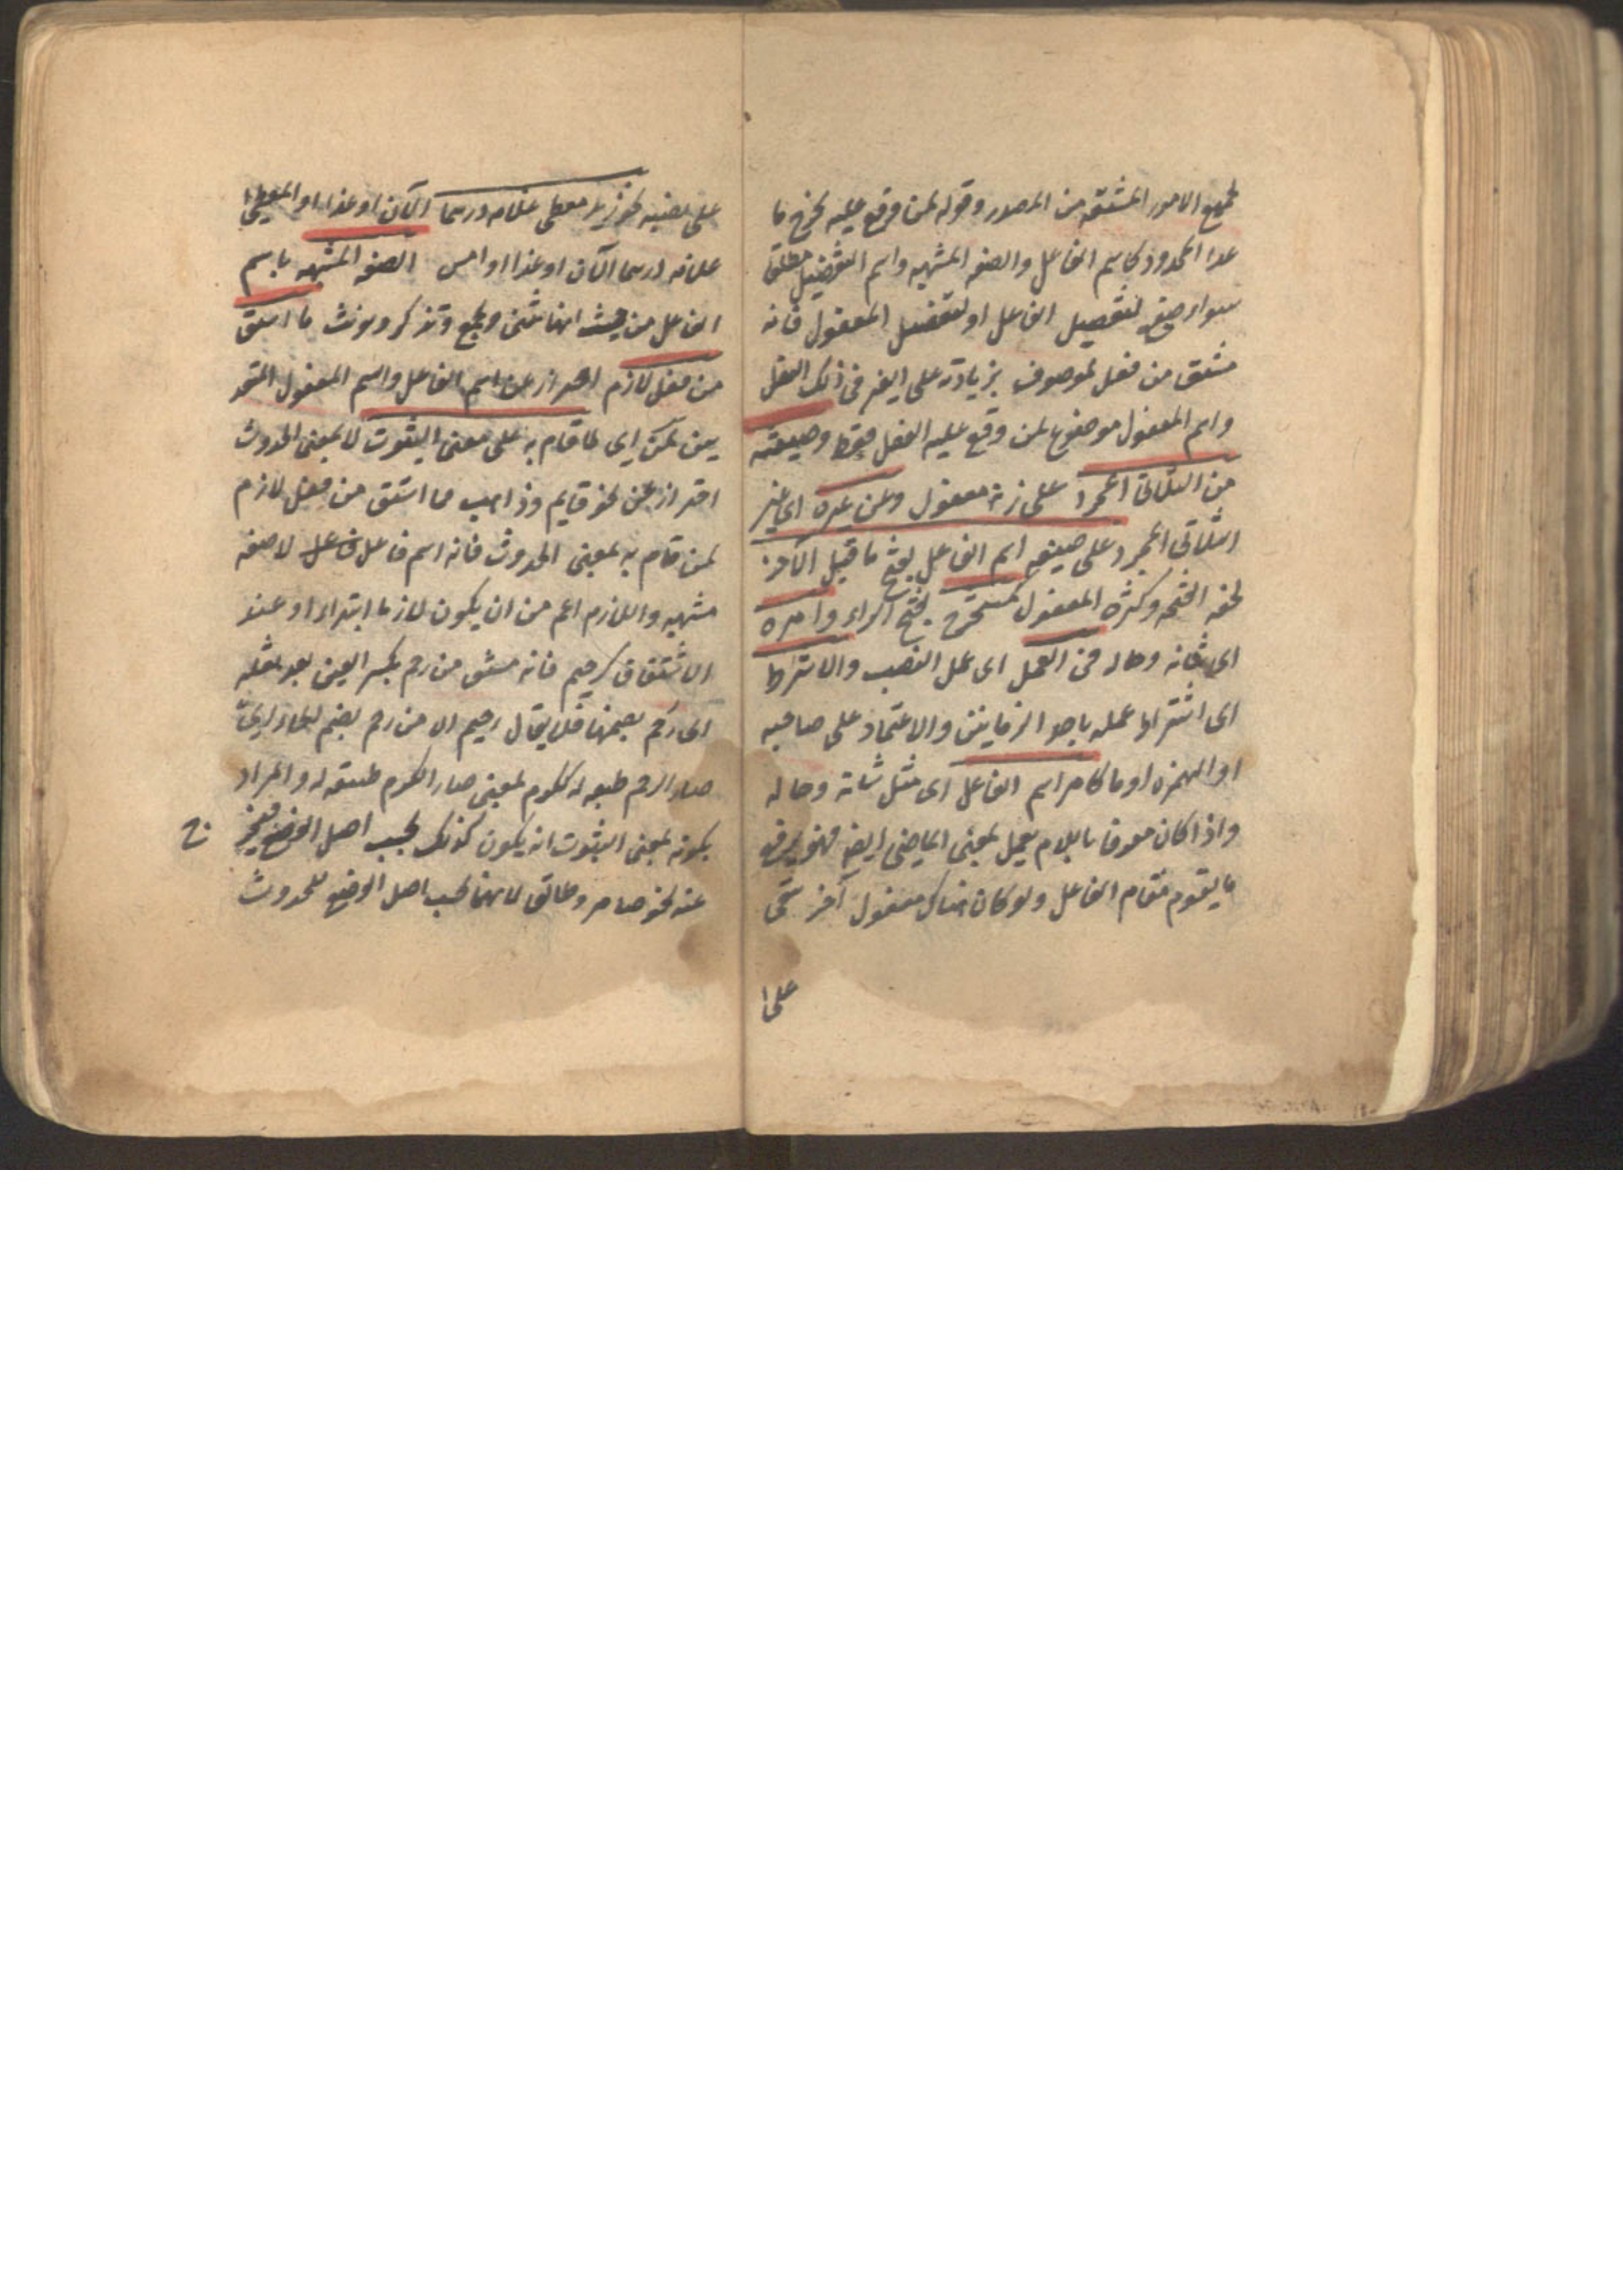 لجميع الامور المشتقه من المصدر وقوله لمن وقع عليه يخرج ما
عدا المحدود كاسم الفاعل والصفه المشبهه واسم التفضيل مطلقا
سواء صيغ لتفضيل الفاعل او لتفضيل المفعول فانه
مشتق من فعل لموصوف بزيادة على الغير فى ذلك الفعل
واسم المفعول موضوع لمن وقع عليه الفعل فقط وصيغته
من الثلاثى المجرد على زنة مفعول ومن غيره اى غير
الثلاثى المجرد على صيغه اسم الفاعل بفتح ما قبل الآخر
لخفه الفتحه وكثرة المفعول كمستخرج بفتح الراء وامره
اى شانه وحاله فى العمل اى عمل النصب والاشتراط
اى اشتراط عمله باحد الزمانين والاعتماد على صاحبه
او الهمزه او ما كامر اسم الفاعل اى مثل شانه وحاله
واذا كان معرفا باللام يعمل بمعنى الماضى ايضا فهو يرفع
ما يقوم مقام الفاعل ولو كان هناك مفعول آخر بقى
على
على نصبه نحو زيد معطى غلامه درهما الآن او غدا او المعطى
غلامه درهما الآن او غدا او امس الصفه المشبهه باسم
الفاعل من حيث انها تثنى وتجمع وتذكر وتونث ما اشتق
من فعل لازم احتراز عن اسم الفاعل واسم المفعول المتعد
يين لمن اى لما قام به على معنى الثبوت لا بمعنى الحدوث
احتراز عن نحو قايم وذاهب مما اشتق من فعل لازم
لمن قام به بمعنى الحدوث فانه اسم فاعل لا صفه
مشبهه واللازم اعم من ان يكون لازما ابتداء او عند
الاشتقاق كرحيم فانه مشتق من رحم بكسر العين بعد نقله
الى رحم بضمها فلا يقال رحيم الا من رحم بضم الحاء اى
صار الرحم طبعه له ككرم بمعنى صار الكرم طبيعه له والمراد
بكونه بمعنى الثبوت انه يكون كذلك بحسب اصل الوضع فيخرج
عنه نحو ضامر وطالق لانهما بحسب اصل الوضع للحدوث